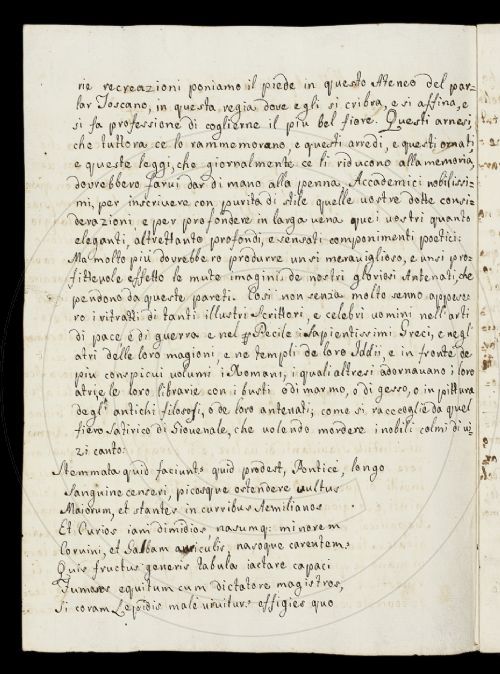 rie recreazioni poniamo il piede in questo Ateneo del par=
lar Toscano, in questa regia dove egli si cribra, e si affina, e
si fa professione di coglierne il più bel fiore. Questi arnesi,
che tuttora ce lo rammemorano, e questi arredi, e questi ornati,
e queste leggi, che giornalmente ce li riducono alla memoria,
dovrebbero farvi dar di mano alla penna, Accademici nobilissi=
mi, per inscrivere con purità di stile quelle vostre dotte consi=
derazioni, e per profondere in larga vena quei vostri quanto
eleganti, altrettanto profondi, e sensati componimenti poetici:
Ma molto più dovrebbero produrre un sì meraviglioso, e un sì pro=
fittevole effetto le mute imagini de nostri gloriosi Antenati, che
pendono da queste pareti. Così non senza molto senno appese=
ro i ritratti di tanti illustri Scrittori, e celebri uomini nell'arti
di pace e di guerra e nel Pecile i Sapientissimi Greci, e negl'
atri delle loro magioni, e ne templi de loro Iddii, e in fronte de
più conspicui volumi i Romani, i quali altresì adornavano i loro
atrj, e le loro librarie con i busti o di marmo, o di gesso, o in pittura
degl' antichi filosofi, o de loro antenati; come si raccoglie da quel
fiero Satirico di Giovenale, che volendo mordere i nobili colmi di vi=
zi cantò:
Stemmata quid faciunt? quid prodest, Pontice, longo
Sanguine censeri, pictosque ostendere vultus
Maiorum, et stantes in curribus Aemilianos
Et Curios iam dimidios nasumq: minorem
Corvini, et Galbam auriculis, nasoque carentem?
Quis fructus generis tabula iactare capaci
Fumosos equitum cum dictatore magistros,
Si coram Lepidis male vivitur? effigies quo